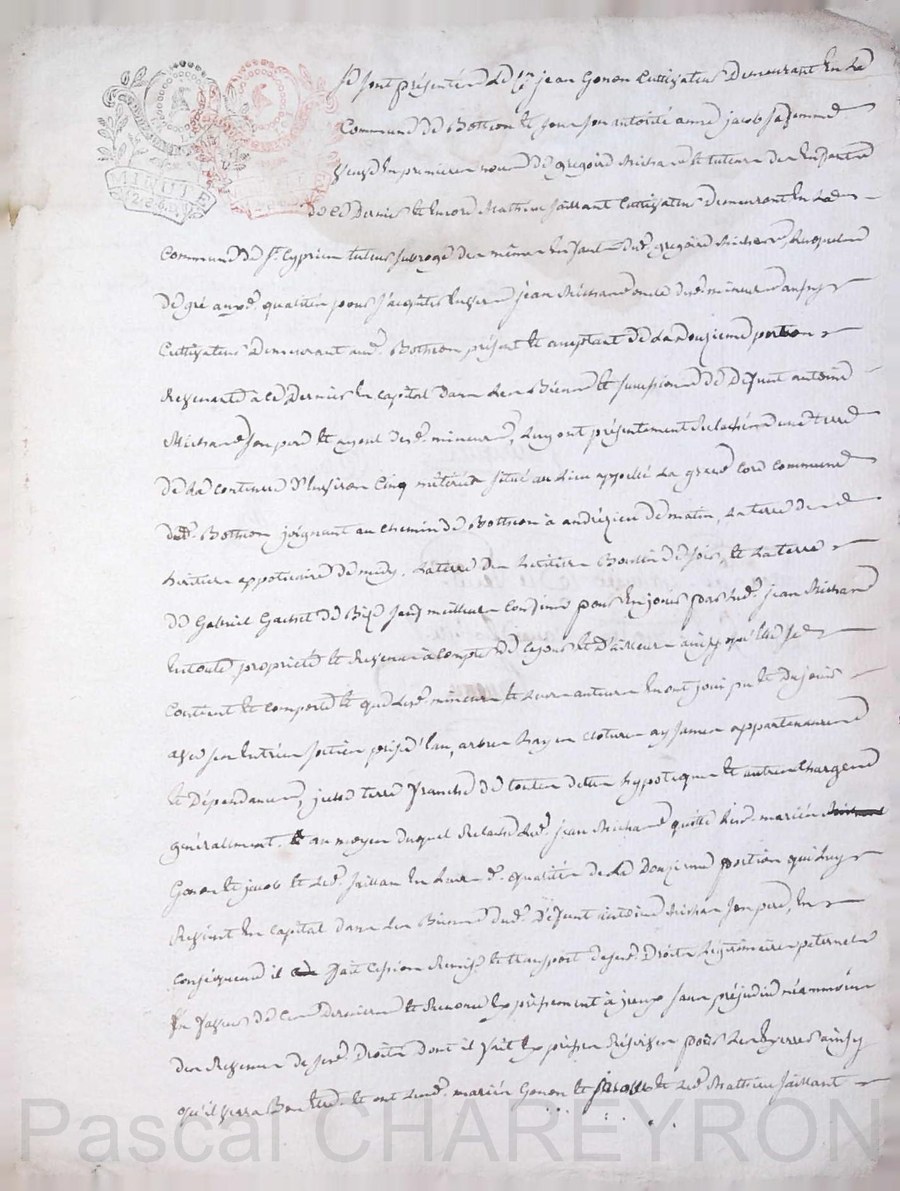 MINUTE
Se sont présentés le Cn jean Gonon Cultivateur Demeurant En La
Commune de Botheon Et sous son autorité anne jacob sa femme
Veuve En premieres noces de gregoire Michard Et tutrice des Enfants
de ce Dernier Et Encore Mathieu Faillant Cultivateur Demeurant En La
Commune de St. Cyprien tuteur subrogé des mêmes Enfants dud. gregoire Michard, Lesquels
de gré auxd. qualités pour s'acquitter Envers jean Michard oncle desd. mineurs aussy
Cultivateur Demeurant aud. Botheon présent Et acceptant de La Douzieme portion
Revenante à ce Dernier En capital dans Les Biens Et succession de Defunt antoine
Michard son pere Et ayeul desd. mineurs, Luy ont présentement Relaché une terre
de La contenue d'Environ Cinq métérées située au Lieu appellé La commune
dud. Botheon joignant au chemin de Botheon à andrézieu de matin, La terre des
héritiers appoticaire de midy, La terre des héritiers de soir, Et La terre
de Gabriel de Bize sauf meilleurs Confins pour En jouir par Led. jean Michard
En toute propriété Et Revenus à Compter de ce jour Et D'ailleurs ainsy qu'elle se
Contient Et comporte Et que Lesd. mineurs Et Leurs auteurs En ont joui pu Et du jouir
avec ses Entrées sorties prise d'Eau, arbres hayes clotures aysances appartenances
Et Dépendances, jusse terre franche de toutes dettes hypoteques Et autres Charges
généralement. Et au moyen duquel Relaché Led. jean Michard quitte Lesd. mariés
Gonon Et jacob Et Led. Faillant En Leurs d. qualités de La Douzieme portion qui Luy
Revient En capital dans Les Biens dud. Defunt antoine Michard son pere, En
conséquence il fait Cession Remise Et transport de ses Droits Légitimaires paternels
En faveur de ces Derniers Et Renonce Expressement à iceux sans préjudice néanmoins
des Revenus de sesd. Droits dont il fait Expresses Réserves pour Les Exercer ainsy
qu'il verra Bon Etre. Et ont Lesd. mariés Gonon Et jacob Et Led. Mathieu Faillant
Pascal CHAREYRON